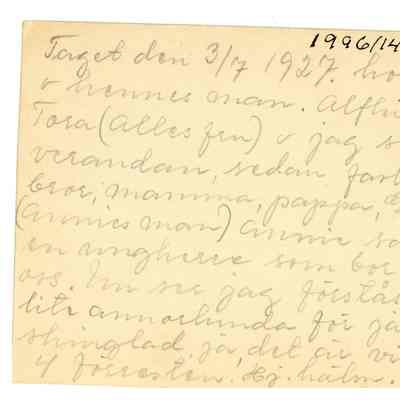 1996/14
Taget den 3/7 1927. ho
o hennes man. Alfhi
Tora (Alles fen) o jag s
verandan, sedan far
bror, mamma, pappa,
(Annies man) Annie so
en ungherre som bor
oss. Nu ser jag förstås
lite annorlunda för jä
shinglad. ja, det är vi
4 förresten. Hj. häln.